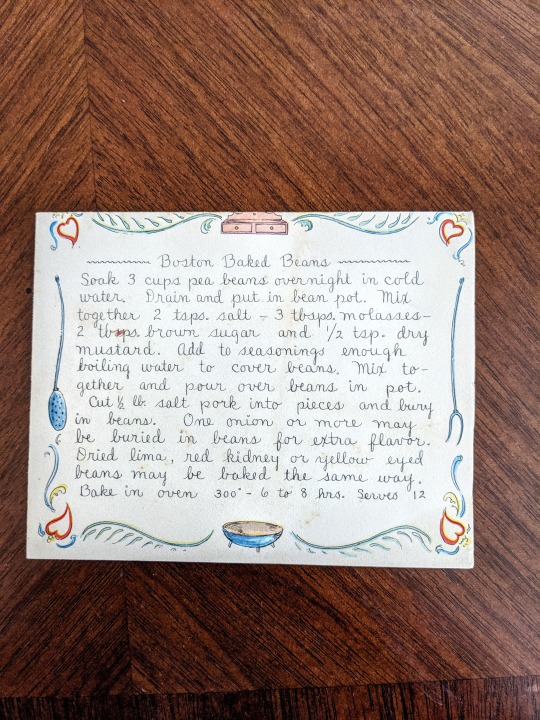 Boston Baked Beans
Soak 3 cups pea beans overnight in cold
water. Drain and put in bean pot. Mix
together 2 tsps. salt - 3 tbsps. molasses-
2 tbsps. brown sugar and 1/2 tsp. dry
mustard. Add to seasonings enough
boiling water to cover beans. Mix to-
gether and pour over beans in pot.
Cut ½ lb. salt pork into pieces and bury
in beans. One onion or more may
be buried in beans for extra flavor.
Dried lima, red kidney or yellow eyed
beans may be baked the same way.
Bake in oven 300° - 6 to 8 hrs. Serves 12